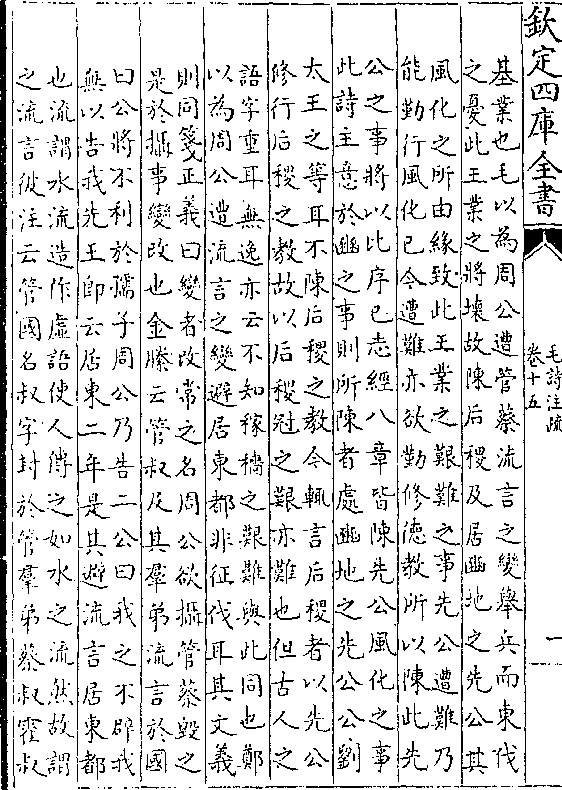 欽定四庫全書
毛詩注疏
卷十五
一
基業也毛以為周公遭管蔡流言之變舉兵而東伐
之憂此王業之將壞故陳后稷及居豳地之先公其
風化之所由緣致此王業之艱難之事先公遭難乃
能勤行風化已今遭難亦欲勤修德教所以陳此先
公之事將以比序已志經八章皆陳先公風化之事
此詩主意於豳之事則所陳者處豳地之先公公劉
太王之等耳不陳后稷之教今輒言后稷者以先公
修行后稷之教故以后稷冠之艱亦難也但古人之
語字重耳無逸亦云不知稼穡之艱難與此同也鄭
以為周公遭流言之變避居東都非征伐耳其文義
則同箋正義曰變者改常之名周公欲攝管蔡毀之
是於攝事變改也金縢云管叔及其羣弟流言於國
曰公將不利於孺子周公乃告二公曰我之不辟我
無以告我先王即云居東二年是其避流言居東都
也流謂水流造作虛語使人傳之如水之流然故謂
之流言彼注云管國名叔字封於管羣弟蔡叔霍叔